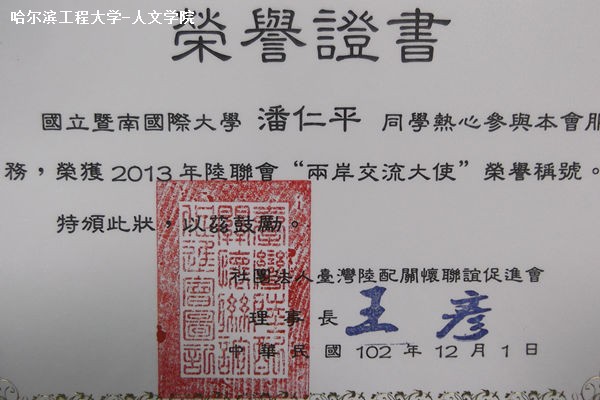 哈尔滨工程大学-人文学院
榮譽證書
國立暨南國際大學 潘仁平 同學熱心參與本會服
務，榮獲 2013 年陸聯會“兩岸交流大使”榮譽稱號。
特頒此狀，以茲鼓勵。
社團法人臺灣陸配關懷聯誼促進會
理事長 王彥
中華民國 102 年 12 月 1 日